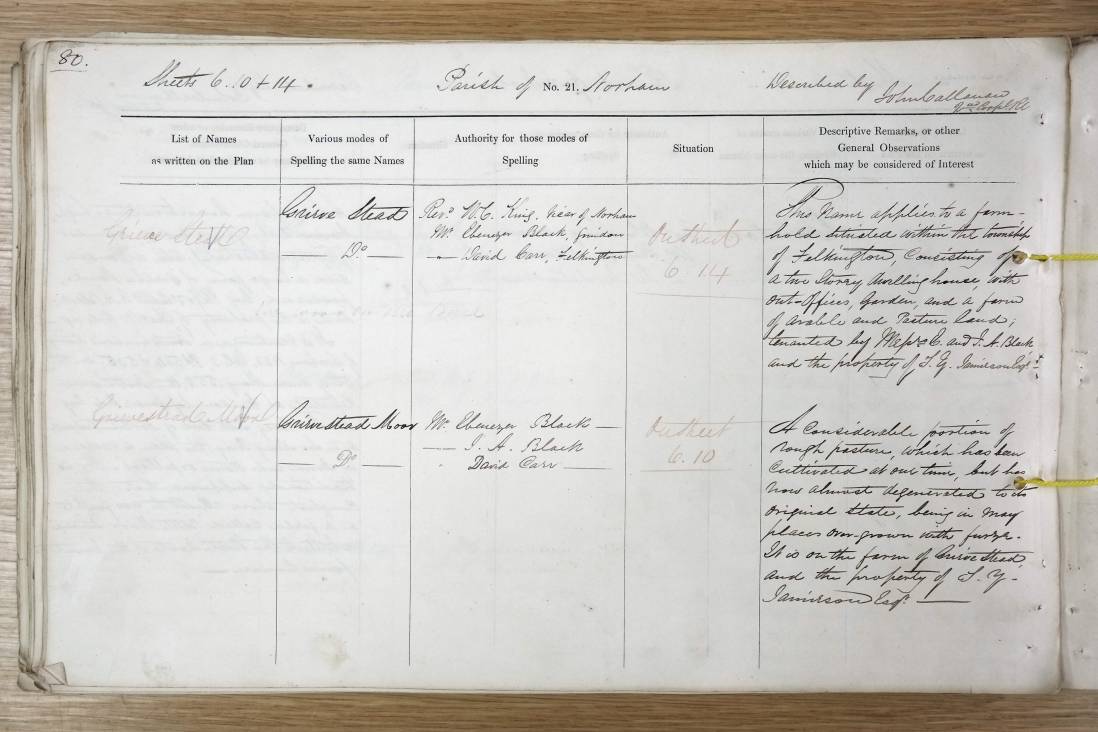 80.
Sheets 6. 10 + 14.
Parish of No. 21. Norham
Described by John Callanan
List of Names
as written on the Plan
Various modes of
Spelling the same Names
Authority for those modes of
Spelling
Situation
Descriptive Remarks, or other
General Observations
which may be considered of Interest
Grieve Stead
Grieve Stead
Do
Revd. W.C. King. Vicar of Norham
Mr. Ebenezer Black, Grindon
— David Carr, Felkington
On Sheet
6 14
This Name applies to a farm-
hold situated within the township
of Felkington, Consisting of
a two Storey dwelling house, with
out-Offices, Garden, and a farm
of arable and Pasture land;
tenanted by Messrs E. and J. A. Black
and the property of T. Y. Jamieson Esqr.
Grievestead Moor
Grievestead Moor
Do
Mr. Ebenezer Black —
— J. A. Black
David Carr —
On Sheet
6. 10
A Considerable portion of
rough pasture, which has been
Cultivated at one time, but has
now almost degenerated to its
original state, being in many
places over-grown with furze.
It is on the farm of Grieve Stead,
and the property of T. Y.
Jamieson Esqr. —